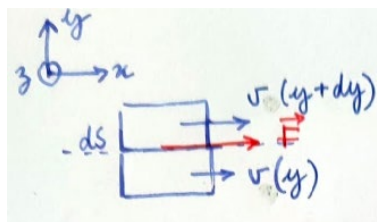 y
z x
v (y+dy)
dS F
v(y)